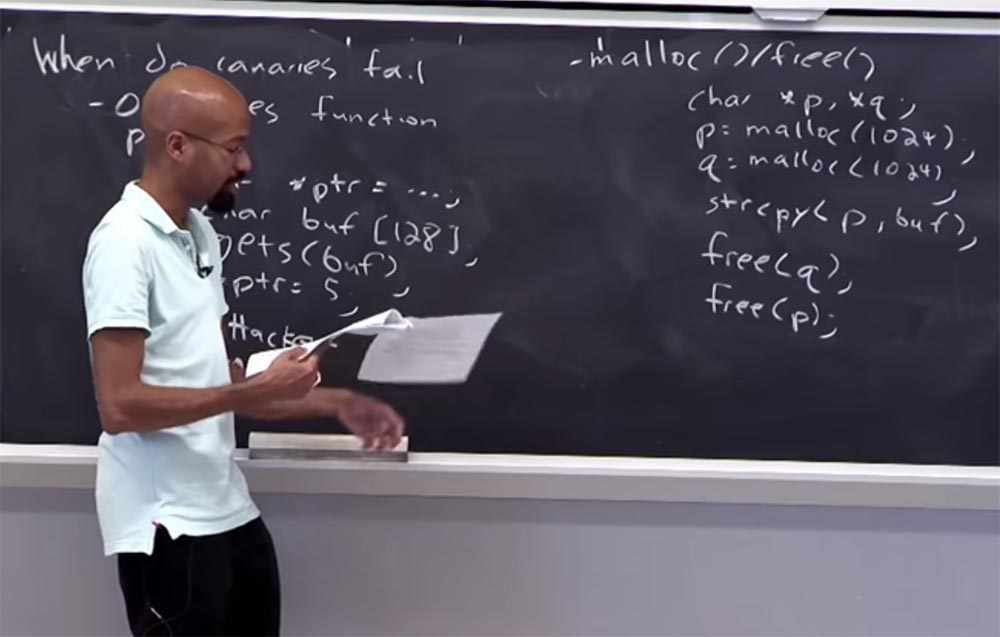 When do canaries fail
- function
*ptr = ...;
buf [128];
gets(buf);
ptr = 5;
-malloc()/free()
char *p, *q;
p = malloc(1024);
q = malloc(1024);
strcpy(p, buf);
free(q);
free(p);